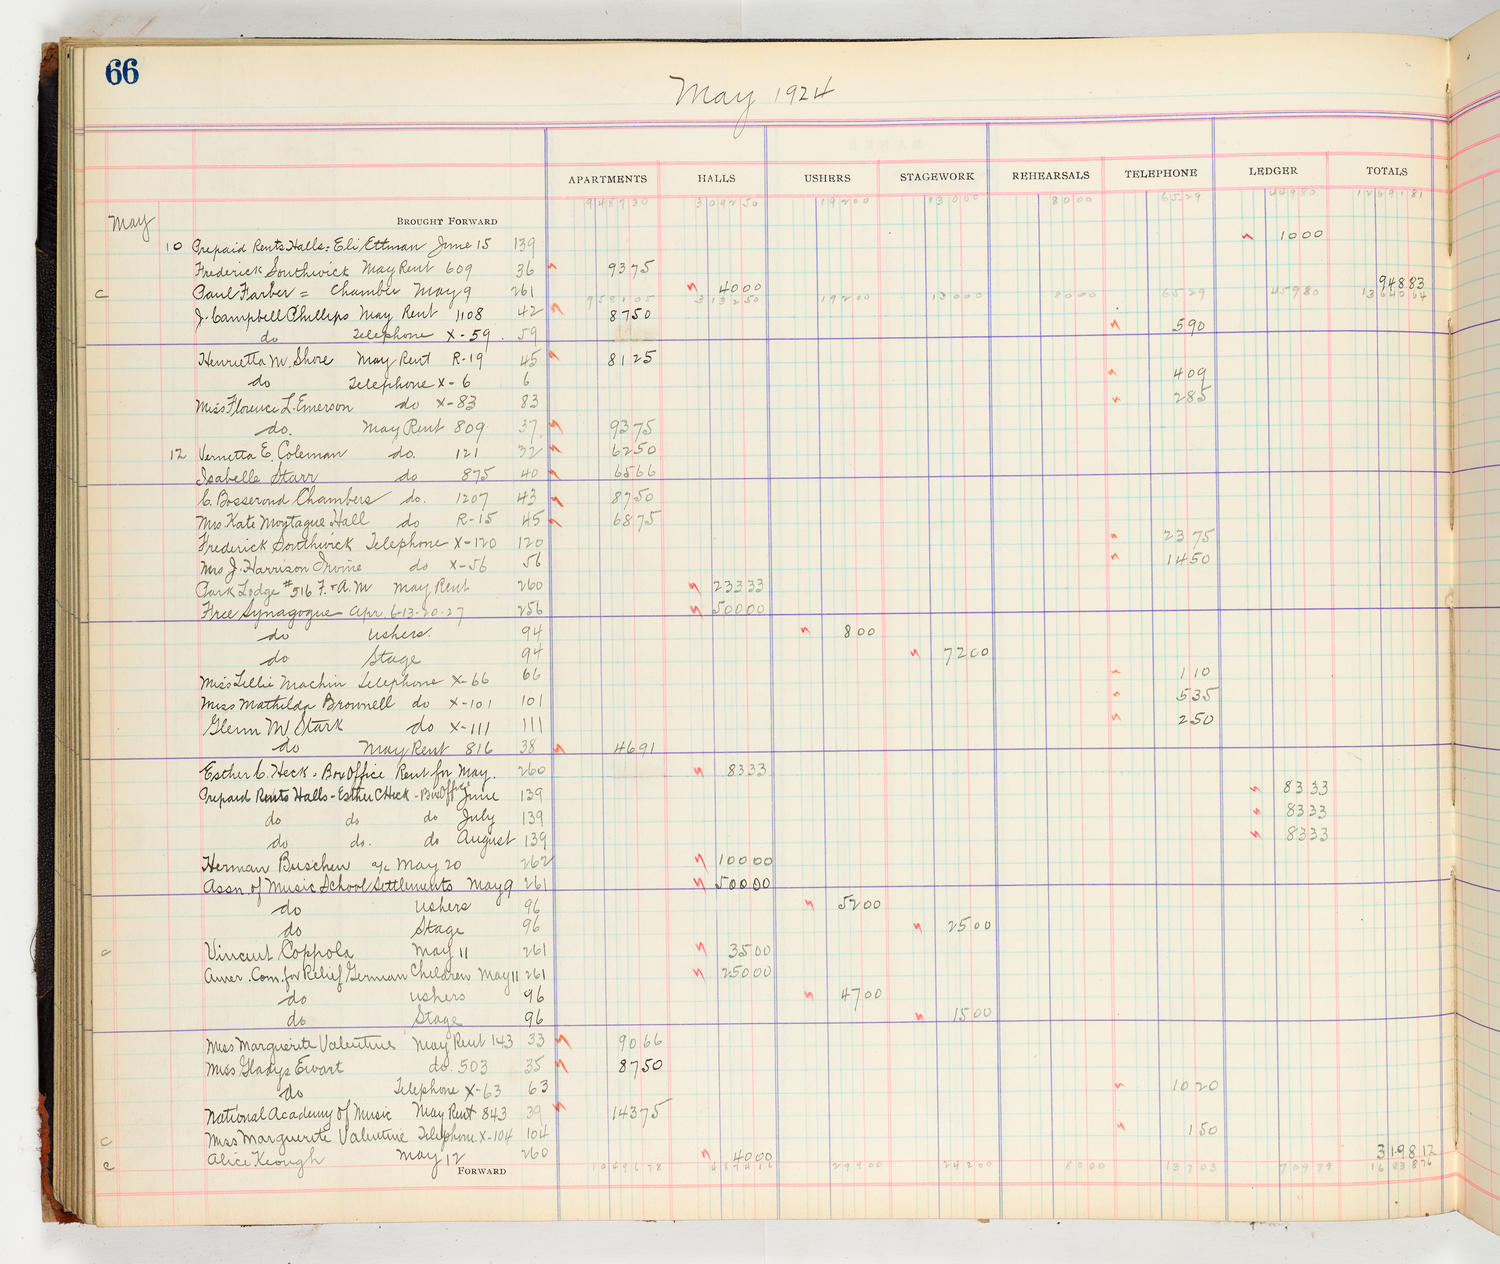 66
May 1924
APARTMENTS HALLS USHERS STAGEWORK REHEARSALS TELEPHONE LEDGER TOTALS
19200 13000 8000 6529 44980 1269181
May BROUGHT FORWARD
10 Prepaid Rents Halls: Eli Ettman June 15 139 1000
Frederick Southwick May Rent 609 36 9375
c Paul Farber = Chamber May 9 261 4000 94883
958105 313250 19200 13000 8000 6529 45980 1364064
J. Campbell Phillips May Rent 1108 42 8750
do Telephone X-59. 59 590
Henrietta M. Shore May Rent R-19 45 8125
do Telephone X-6 6 409
Miss Florence L. Emerson do X-83 83 285
do. May Rent 809 37 9375
12 Vernetta E. Coleman do. 121 32 6250
Isabelle Starr do 875 40 6566
C. Bosserond Chambers do. 1207 43 8750
Mrs Kate Moytague Hall do R-15 45 6875
Frederick Southwick Telephone X-120 120 2375
Mrs J. Harrison Irvine do X-56 56 1450
Park Lodge #516 F. & A. M May Rent 260 23333
Free Synagogue Apr. 6-13-20-27 256 50000
do Ushers. 94 800
do Stage 94 7200
Miss Lillie Machin Telephone X-66 66 110
Miss Mathilda Brownell do X-101 101 535
Glenn M Stark do X-111 111 250
do May Rent 816 38 4691
Esther C. Heck - Box Office Rent for May. 260 8333
Prepaid Rents Halls - Esther C Heck - Box Office June 139 8333
do do do July 139 8333
do do. do August 139 8333
Herman Buschen a/c May 20 262 10000
Assn. of Music School Settlements May 9 261 50000
do Ushers 96 5200
do Stage 96 2500
c Vincent Coppola May 11 261 3500
Amer. Com. for Relief German Children May 11 261 25000
do Ushers 96 4700
do Stage 96 1500
Miss Marguerite Valentine May Rent 143 33 9066
Miss Gladys Ewart do. 503 35 8750
do Telephone X-63 63 1020
National Academy of Music May Rent 843 39 14375
c Miss Marguerite Valentine Telephone X-104 104 150
c Alice Keough May 12 260 4000 319812
FORWARD 29900 24200 8000 13703 70979 1683876